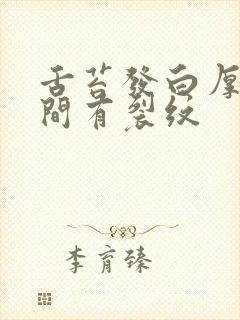 舌苔發白厚
間有裂紋
李育臻